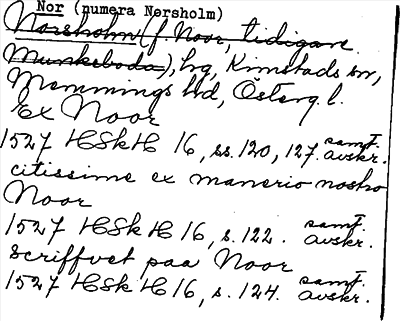 Nor (numera Norsholm)
Norsholm (f. Noor, tidigare
Munkeboda), hg, Kimstads sn,
Memmings hd, Österg. l.
Ex Noor
1527 HSkH 16, ss. 120, 127. samt. avskr.
citissime ex manerio nostro
Noor
1527 HSkH 16, s. 122. samt. avskr.
Scriffvet paa Noor
1527 HSkH 16, s. 124. samt. avskr.